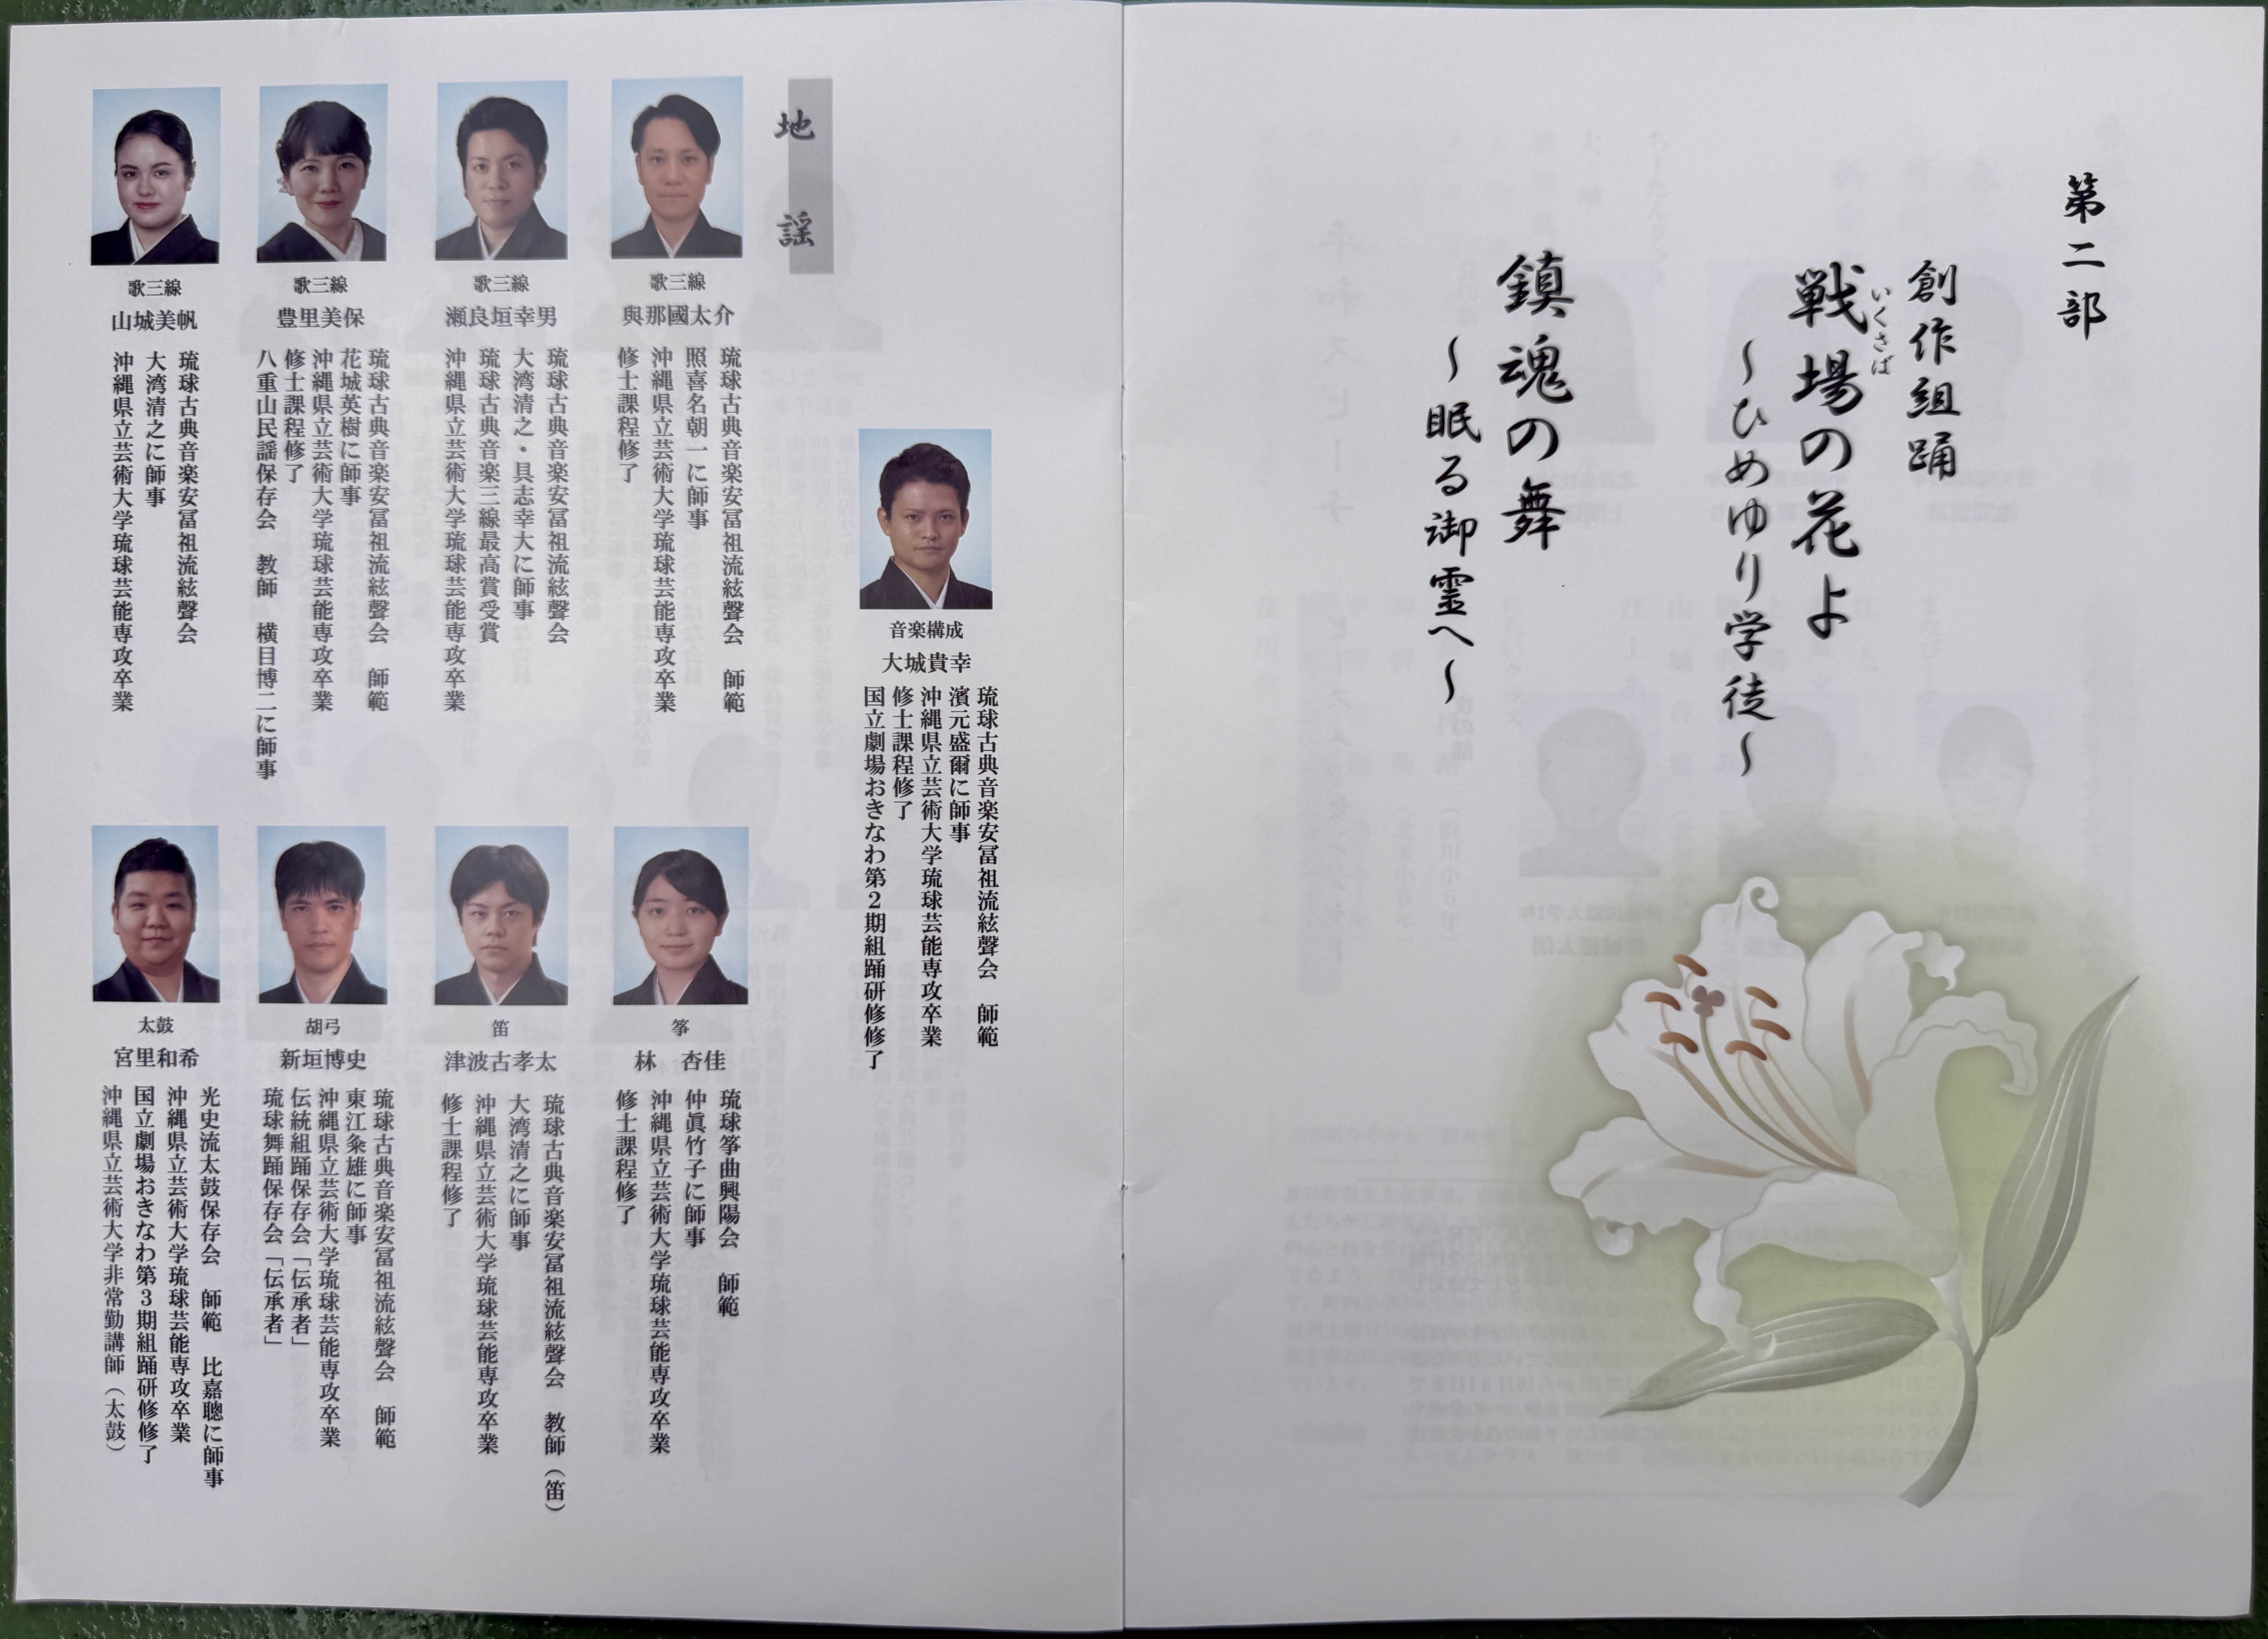 第二部
創作組踊
戦場の花よ
いくさば
～ひめゆり学徒～
鎮魂の舞
～眠る御霊へ～
音楽構成
大城貴幸
琉球古典音楽安冨祖流絃聲会　師範
濱元盛爾に師事
沖縄県立芸術大学琉球芸能専攻卒業
修士課程修了
国立劇場おきなわ第2期組踊研修修了
地謡
歌三線
與那國太介
琉球古典音楽安冨祖流絃聲会　師範
照喜名朝一に師事
沖縄県立芸術大学琉球芸能専攻卒業
修士課程修了
歌三線
瀬良垣幸男
琉球古典音楽安冨祖流絃聲会
大湾清之・具志幸大に師事
琉球古典音楽三線最高賞受賞
沖縄県立芸術大学琉球芸能専攻卒業
歌三線
豊里美保
琉球古典音楽安冨祖流絃聲会　師範
花城英樹に師事
沖縄県立芸術大学琉球芸能専攻卒業
修士課程修了
八重山民謡保存会　教師　横目博二に師事
歌三線
山城美帆
琉球古典音楽安冨祖流絃聲会
大湾清之に師事
沖縄県立芸術大学琉球芸能専攻卒業
箏
林　杏佳
琉球箏曲興陽会　師範
仲眞竹子に師事
沖縄県立芸術大学琉球芸能専攻卒業
修士課程修了
笛
津波古孝太
琉球古典音楽安冨祖流絃聲会　教師（笛）
大湾清之に師事
沖縄県立芸術大学琉球芸能専攻卒業
修士課程修了
胡弓
新垣博史
琉球古典音楽安冨祖流絃聲会　師範
東江粂雄に師事
沖縄県立芸術大学琉球芸能専攻卒業
伝統組踊保存会「伝承者」
琉球舞踊保存会「伝承者」
太鼓
宮里和希
光史流太鼓保存会　師範　比嘉聰に師事
沖縄県立芸術大学琉球芸能専攻卒業
国立劇場おきなわ第3期組踊研修修了
沖縄県立芸術大学非常勤講師（太鼓）